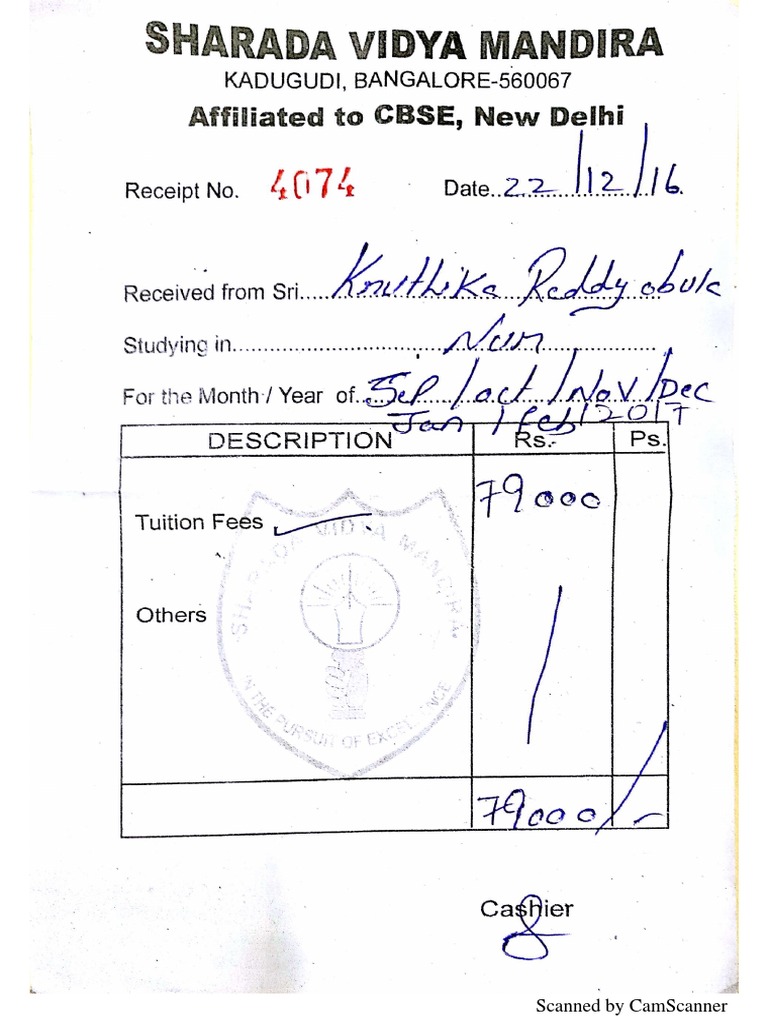 SHARADA VIDYA MANDIRA
KADUGUDI, BANGALORE-560067
Affiliated to CBSE, New Delhi
Receipt No. 4074 Date..22/12/16.
Received from Sri.....Kruthika Reddy obula
Studying in.....Nur
For the Month / Year of..Sep/oct/Nov/Dec
Jan/feb/2017
DESCRIPTION Rs.- Ps.
Tuition Fees 79000
Others
79000/-
SHARADA VIDYA MANDIRA.
IN THE PURSUIT OF EXCELLENCE
Cashier
Scanned by CamScanner